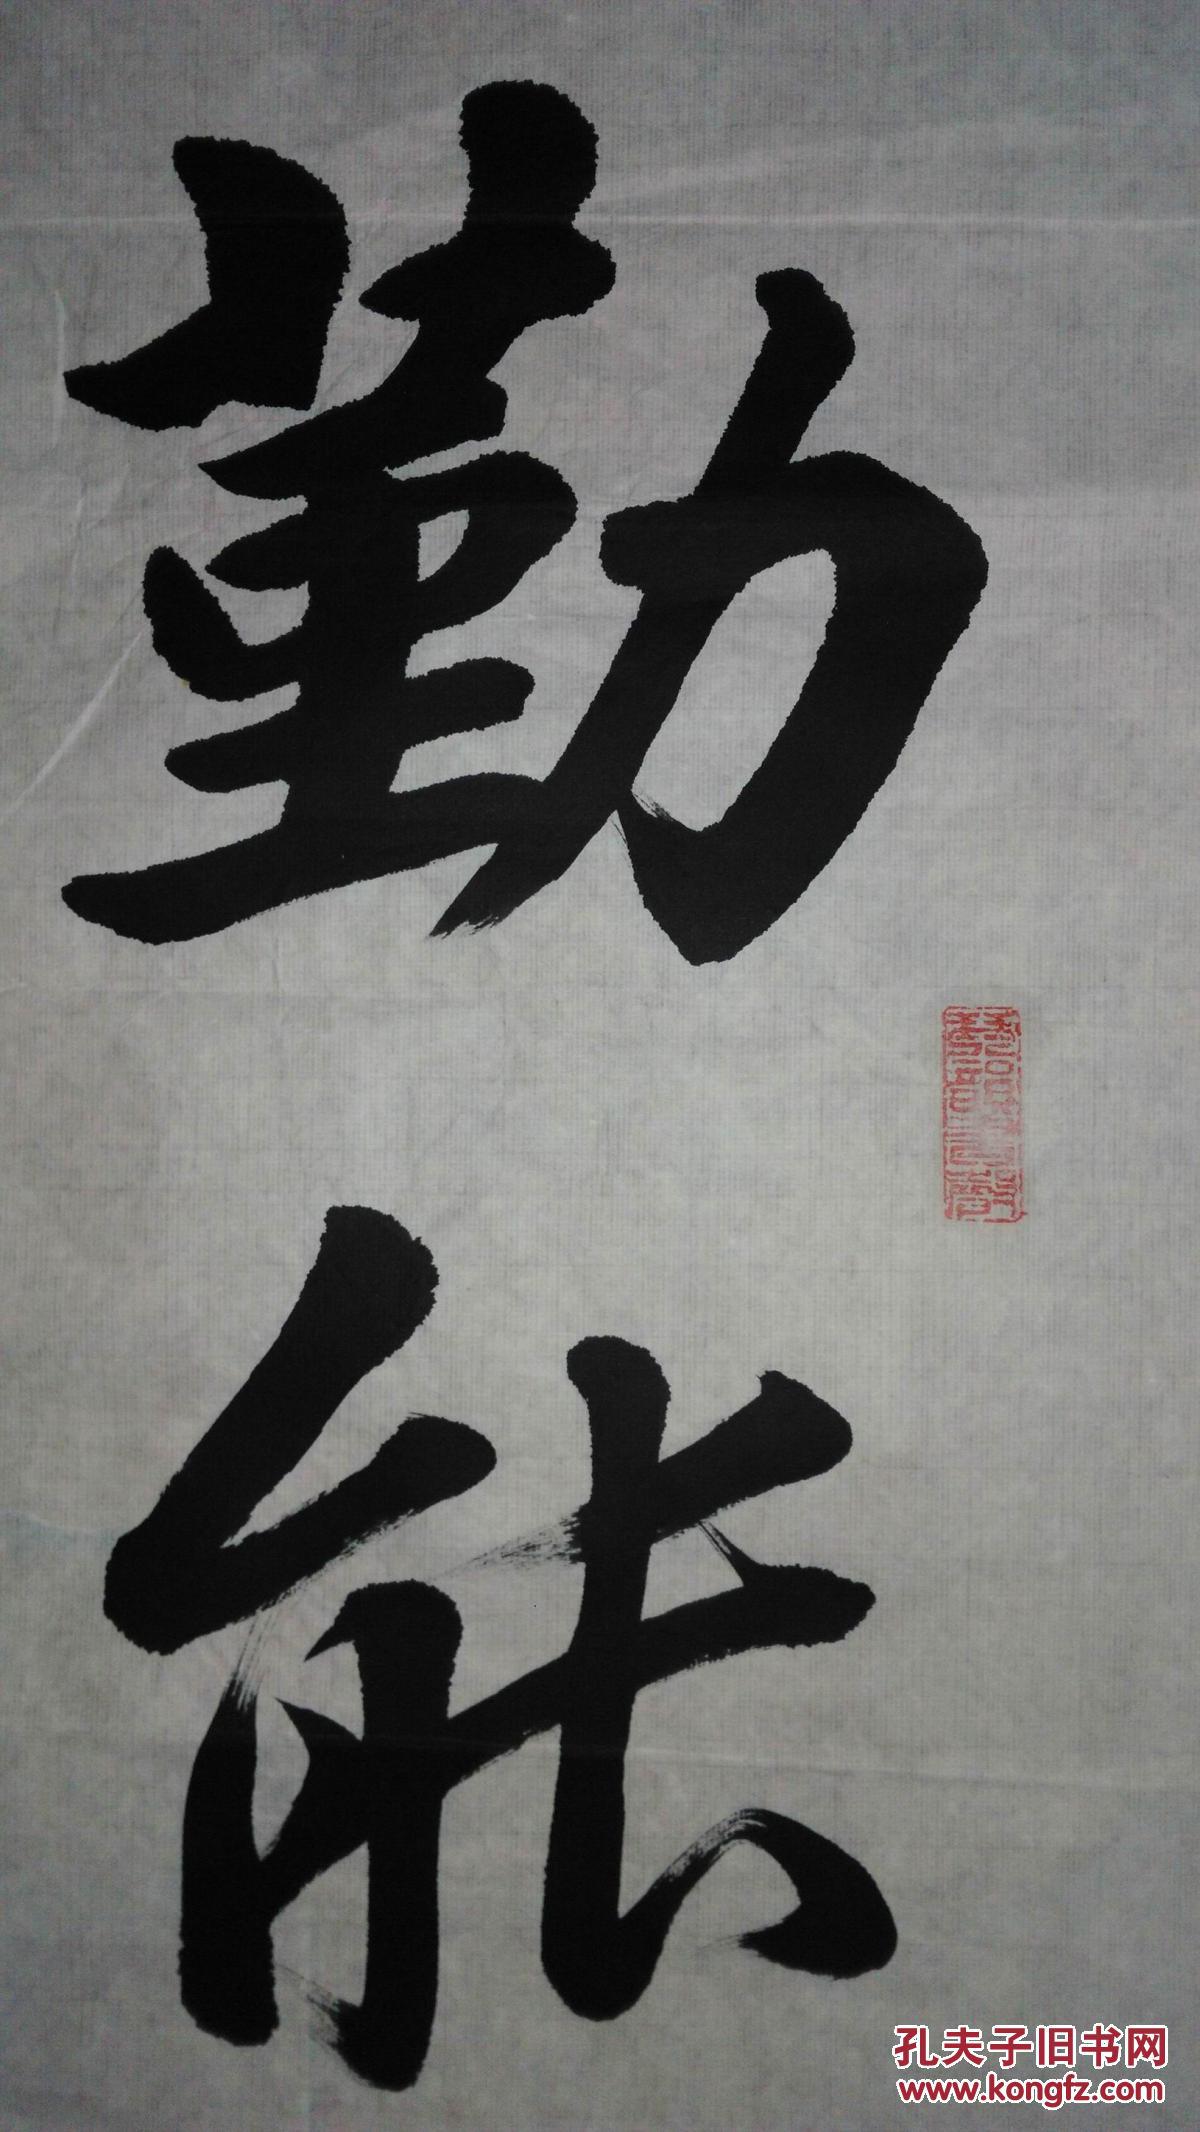 勤
能
孔夫子旧书网
www.kongfz.com